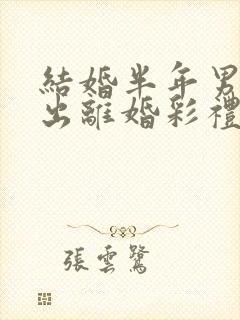 結婚半年男
出離婚彩禮
張雲鷺